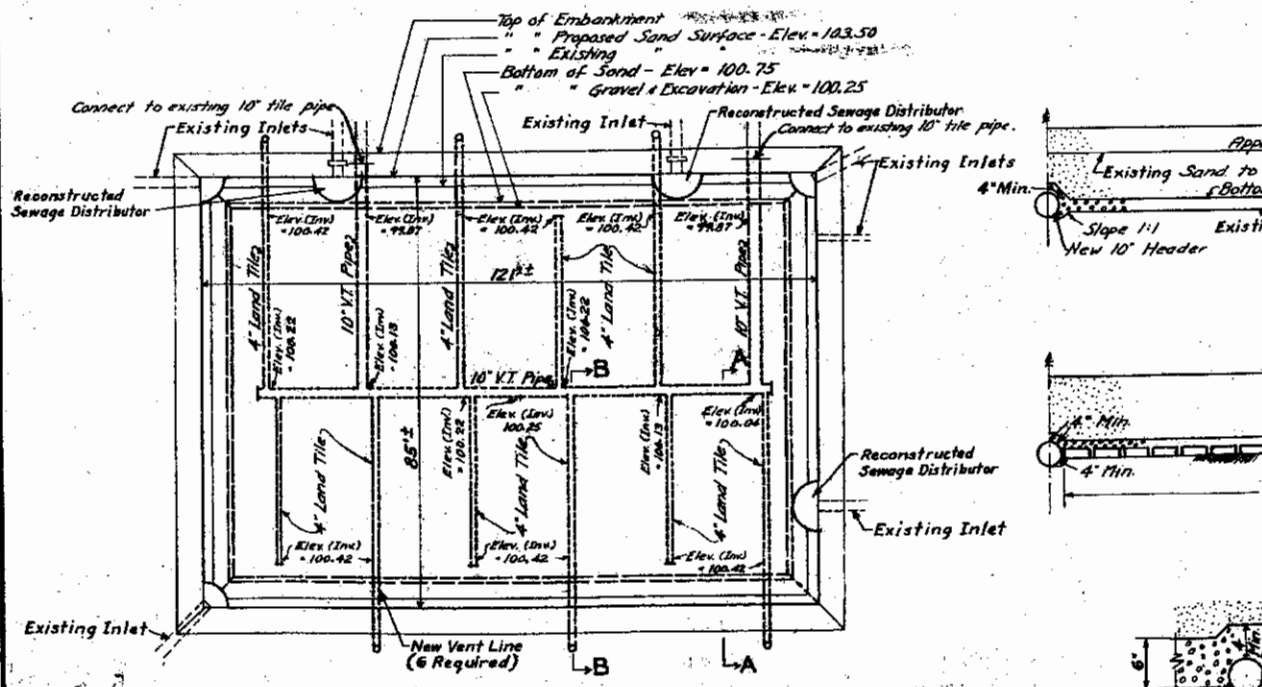 Top of Embankment
" " Proposed Sand Surface - Elev. = 103.50
" " Existing " "
Bottom of Sand - Elev = 100.75
" " Gravel & Excavation - Elev. = 100.25
Connect to existing 10" tile pipe
Existing Inlets
Existing Inlet
Reconstructed Sewage Distributor
Connect to existing 10" tile pipe.
Existing Inlets
Reconstructed
Sewage Distributor
Elev. (Inv.)
= 100.42
Elev. (Inv.)
= 99.87
Elev. (Inv.)
= 100.42
Elev. (Inv.)
= 100.42
Elev. (Inv.)
= 99.87
121'±
4" Land Tile
10" V.T. Pipe
4" Land Tile
4" Land Tile
10" V.T. Pipe
Elev. (Inv.)
= 100.22
Elev. (Inv.)
= 100.13
Elev. (Inv.)
B
A
10" V.T. Pipe
85'±
Elev. (Inv.)
= 100.22
Elev. (Inv.)
100.25
Elev. (Inv.)
= 100.13
Elev. (Inv.)
= 100.04
4" Land Tile
4" Land Tile
4" Land Tile
Elev. (Inv.)
= 100.42
Elev. (Inv.)
= 100.42
Elev. (Inv.)
= 100.42
Reconstructed
Sewage Distributor
Existing Inlet
Existing Inlet
New Vent Line
(6 Required)
B
A
App
Existing Sand to
Botto
4" Min.
Slope 1:1
Existi
New 10" Header
4" Min.
4" Min.
6"
Min.